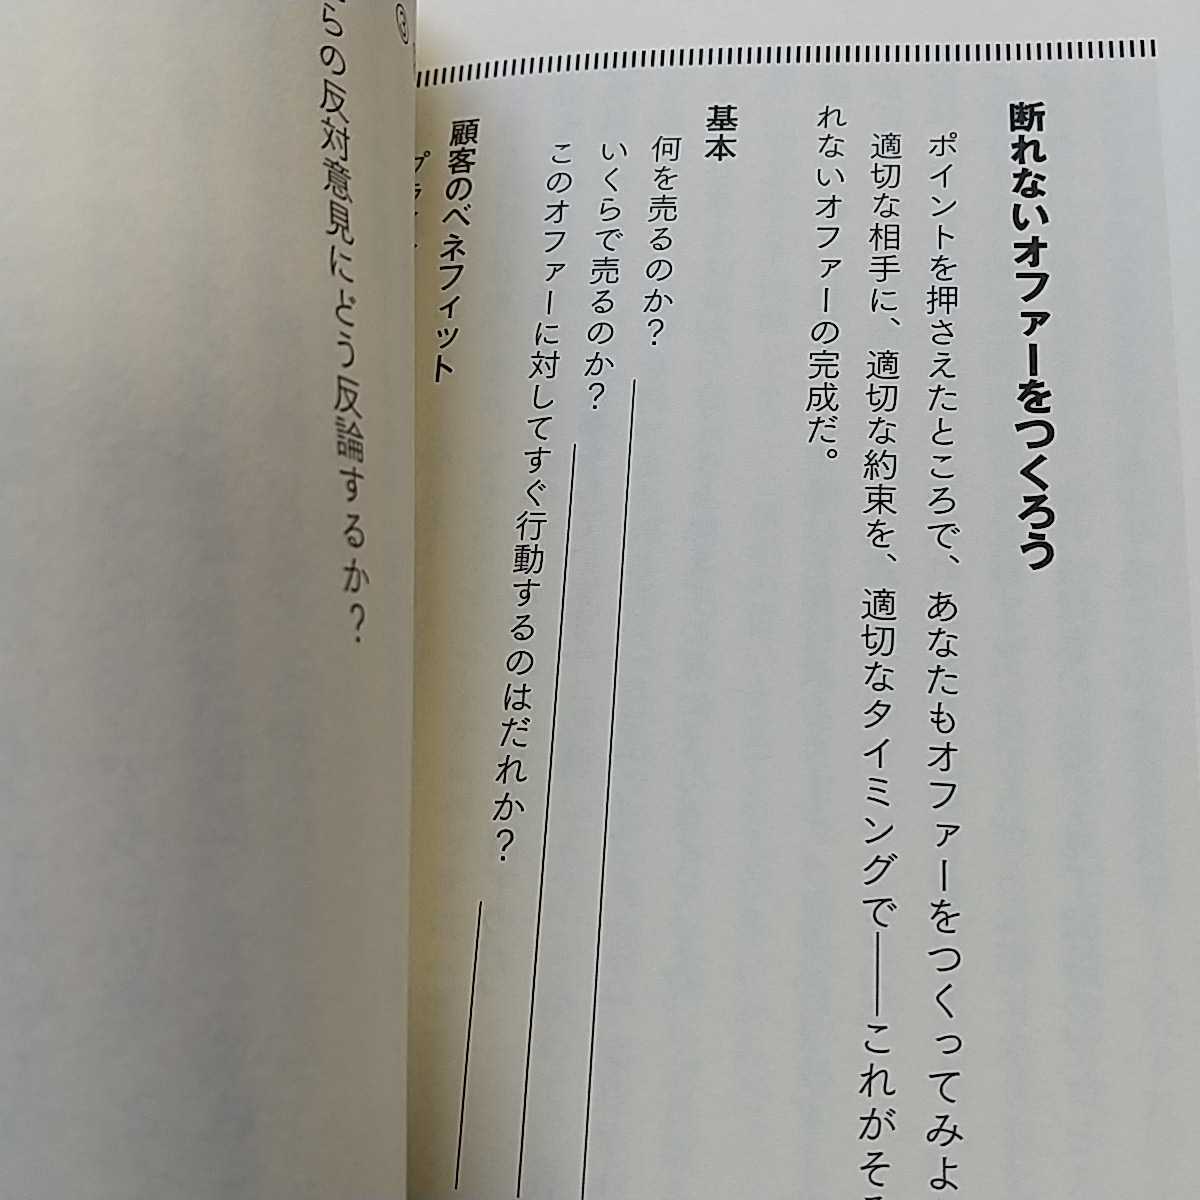 断れないオファーをつくろう
ポイントを押さえたところで、あなたもオファーをつくってみよ
適切な相手に、適切な約束を、適切なタイミングで――これがそ
れないオファーの完成だ。
基本
何を売るのか？
いくらで売るのか？
このオファーに対してすぐ行動するのはだれか？
顧客のベネフィット
③
らの反対意見にどう反論するか？